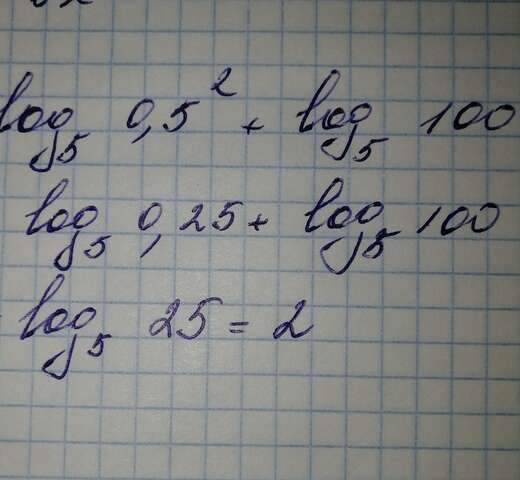 log₅ 0,5² + log₅ 100
log₅ 0,25 + log₅ 100
log₅ 25 = 2